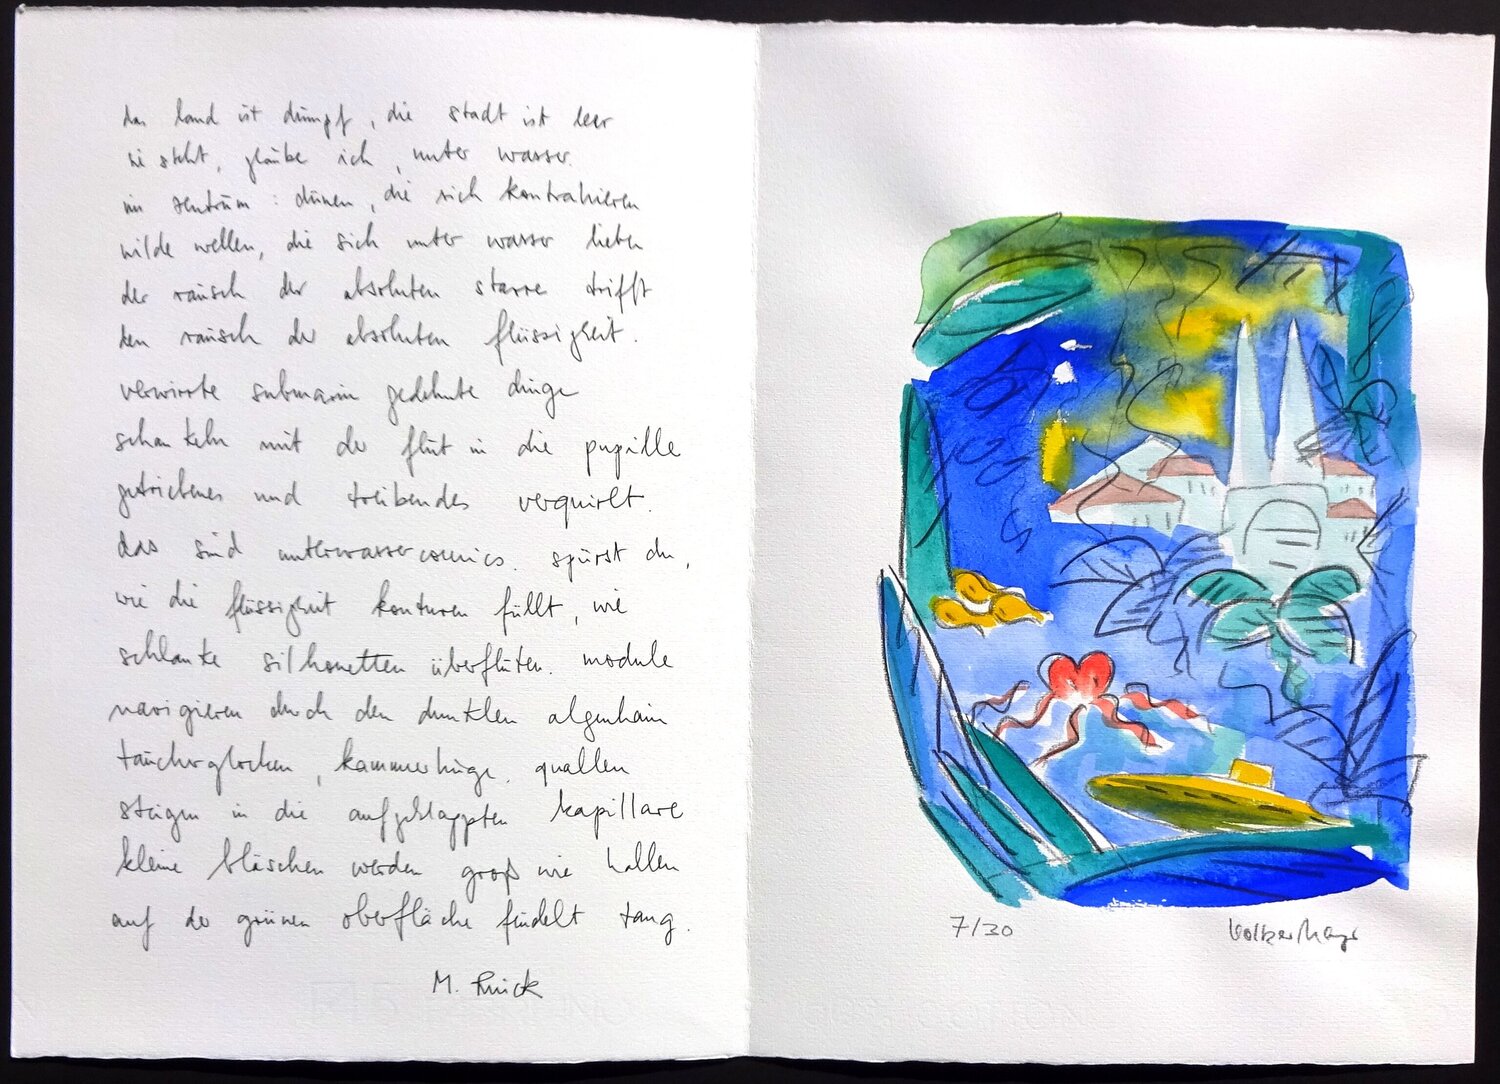 das land ist dumpf, die stadt ist leer
sie steht, glaube ich, unter wasser.
im zentrum: dünen, die sich kontrahieren
wilde wellen, die sich unter wasser lieben
der rausch der absoluten starre trifft
den rausch der absoluten flüssigkeit.
verwirrte submarin gedehnte dinge
schaukeln mit der flut in die pupille
getriebenes und treibendes verquirlt.
das sind unterwassercomics. spürst du,
wie die flüssigkeit konturen füllt, wie
schlanke silhouetten überfluten. module
navigieren durch den dunklen algenhain
taucherglocken, kammerlinge. quallen
steigen in die aufgeklappten kapillare
kleine bläschen werden groß wie hallen
auf der grünen oberfläche fündelt tang.
M.
7/30